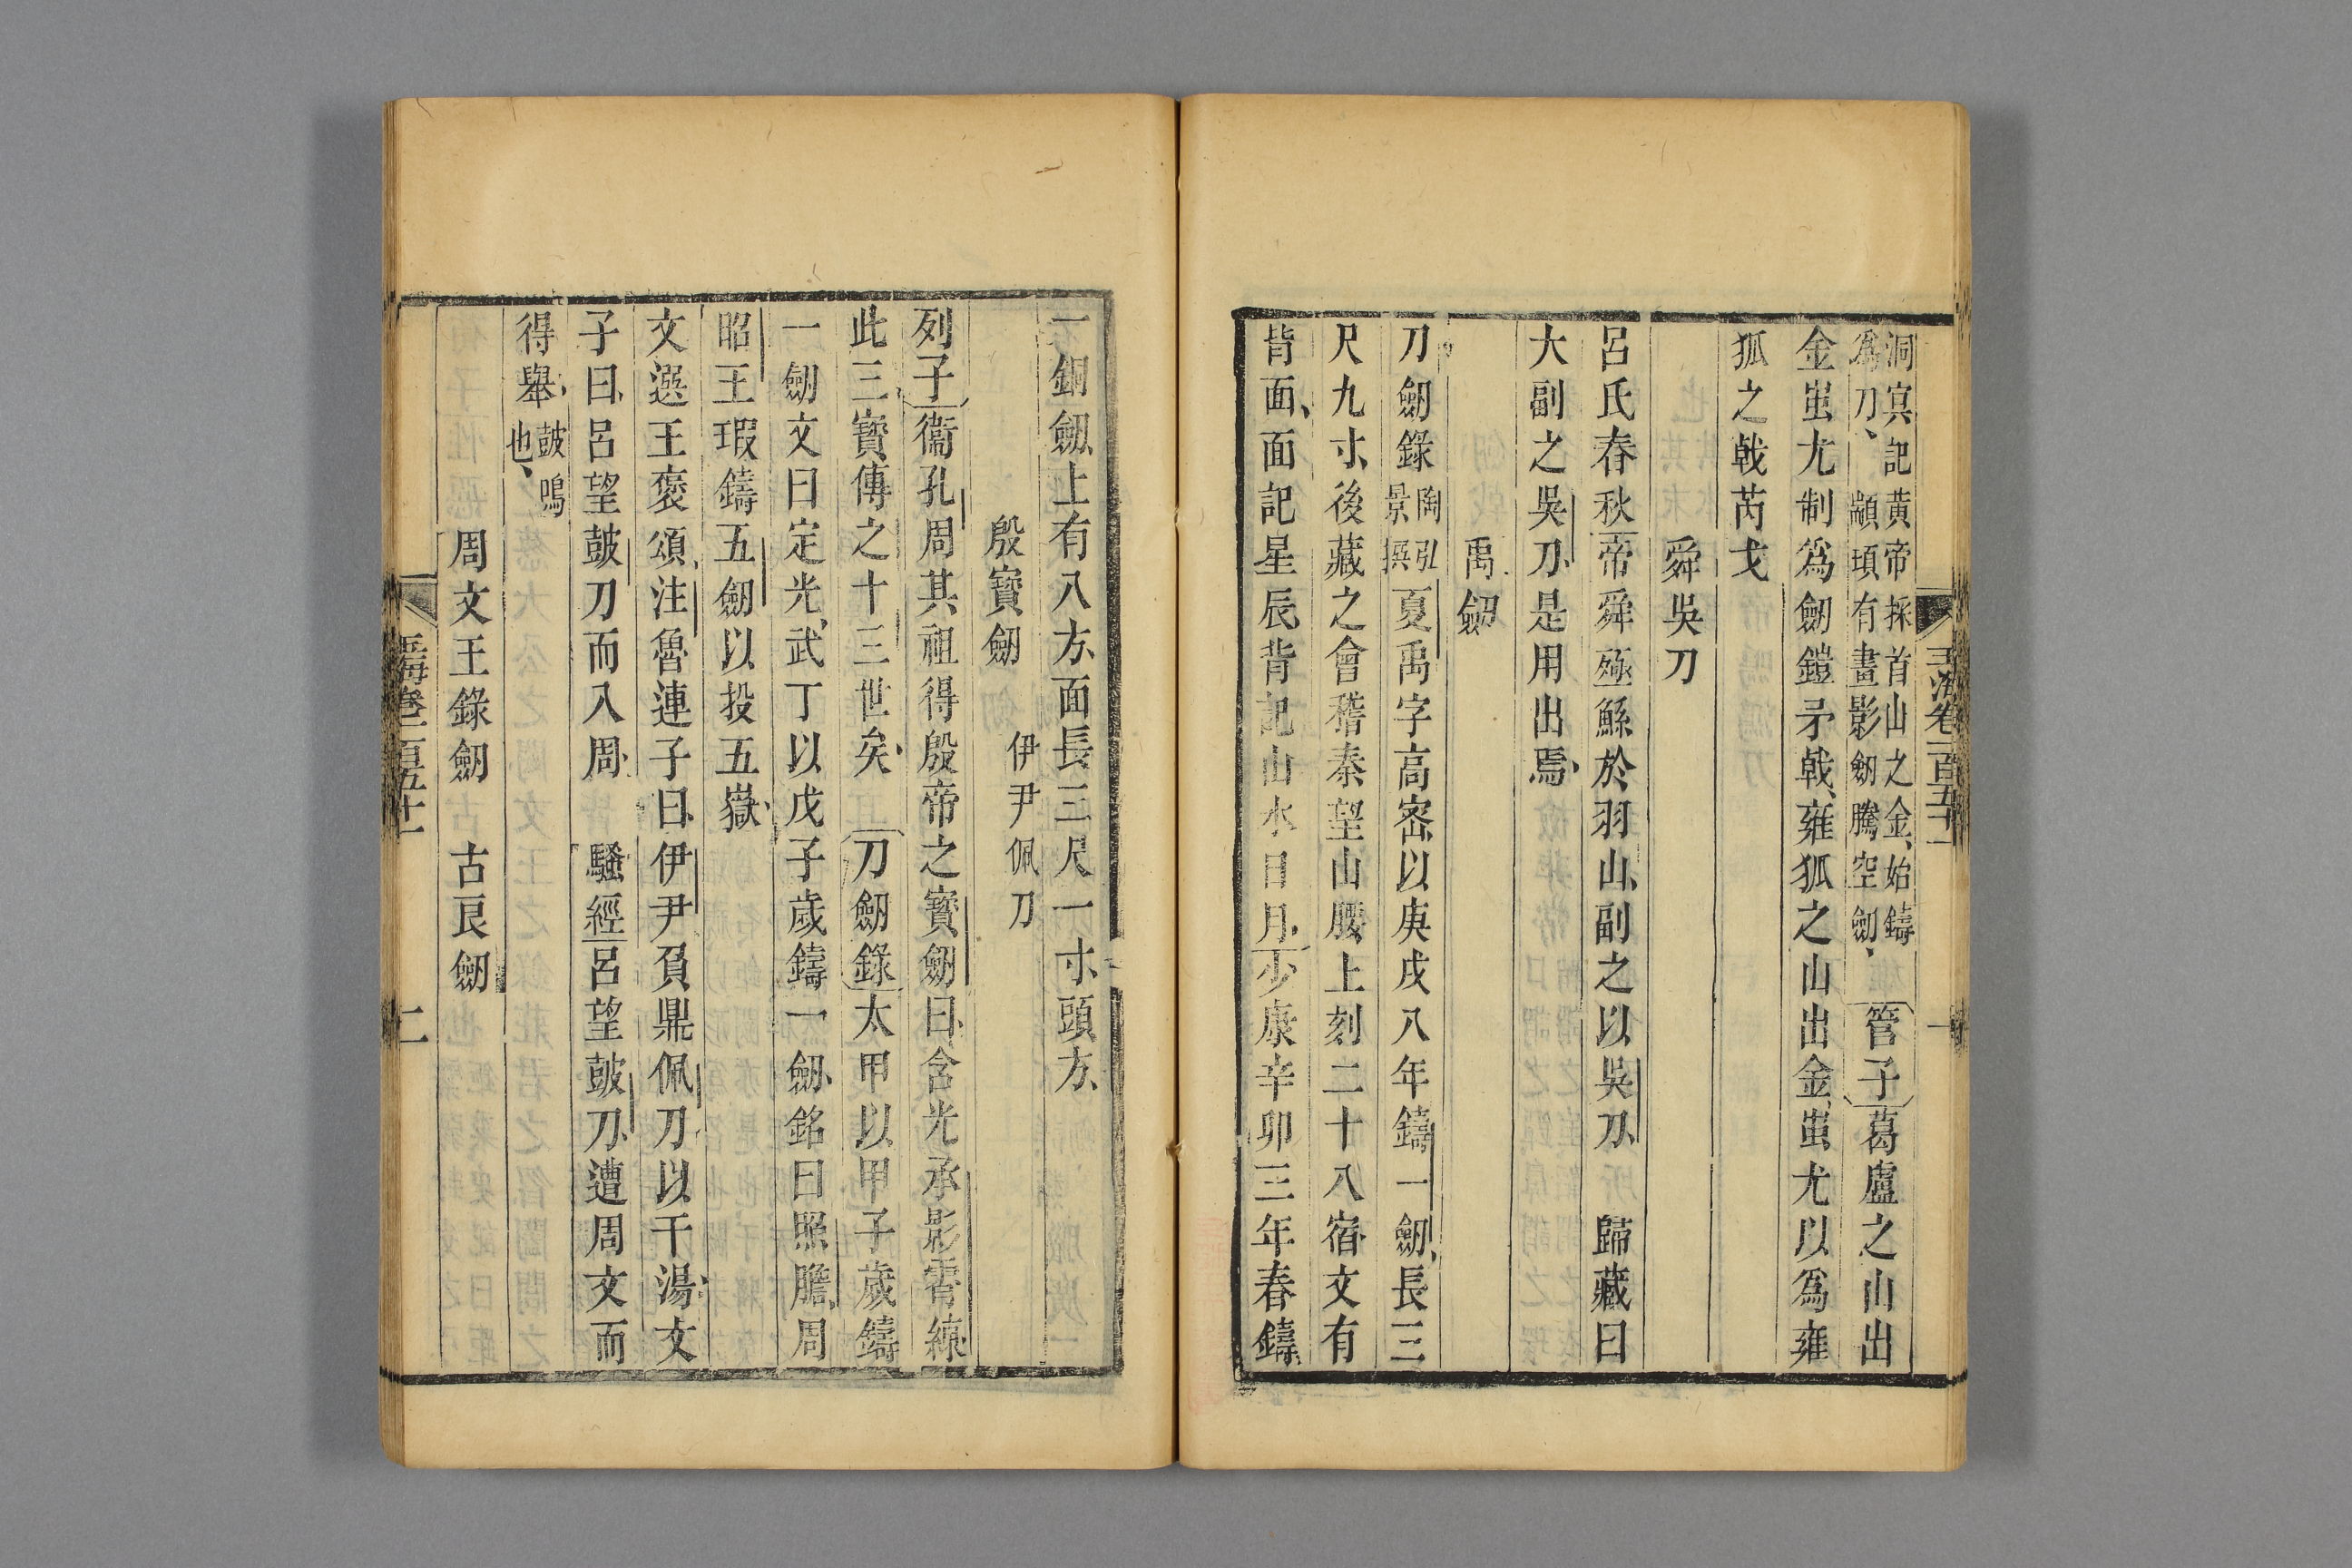 玉海卷一百五十一
一
洞冥記黄帝採首山之金始鑄
爲刀顓頊有畫影劒騰空劒
管子葛盧之山出
金蚩尤制爲劒鎧矛戟雍狐之山出金蚩尤以爲雍
狐之戟芮戈
舜吳刀
呂氏春秋帝舜殛鯀於羽山副之以吳刀 歸藏曰
大副之吳刀是用出焉
禹劒
刀劒錄
陶弘
景撰
夏禹字高密以庚戌八年鑄一劒長三
尺九寸後藏之會稽秦望山腰上刻二十八宿文有
背面面記星辰背記山水日月少康辛卯三年春鑄
一銅劒上有八方面長三尺一寸頭方
殷寶劒 伊尹佩刀
列子衞孔周其祖得殷帝之寶劒曰含光承影霄練
此三寶傳之十三世矣 刀劒錄太甲以甲子歲鑄
一劒文曰定光武丁以戊子歲鑄一劒銘曰照膽周
昭王瑕鑄五劒以投五嶽
文選王褒頌注魯連子曰伊尹負鼎佩刀以干湯文
子曰呂望鼓刀而入周 騷經呂望鼓刀遭周文而
得舉
鼓鳴
也
周文王錄劒 古良劒
玉海卷一百五十一
二